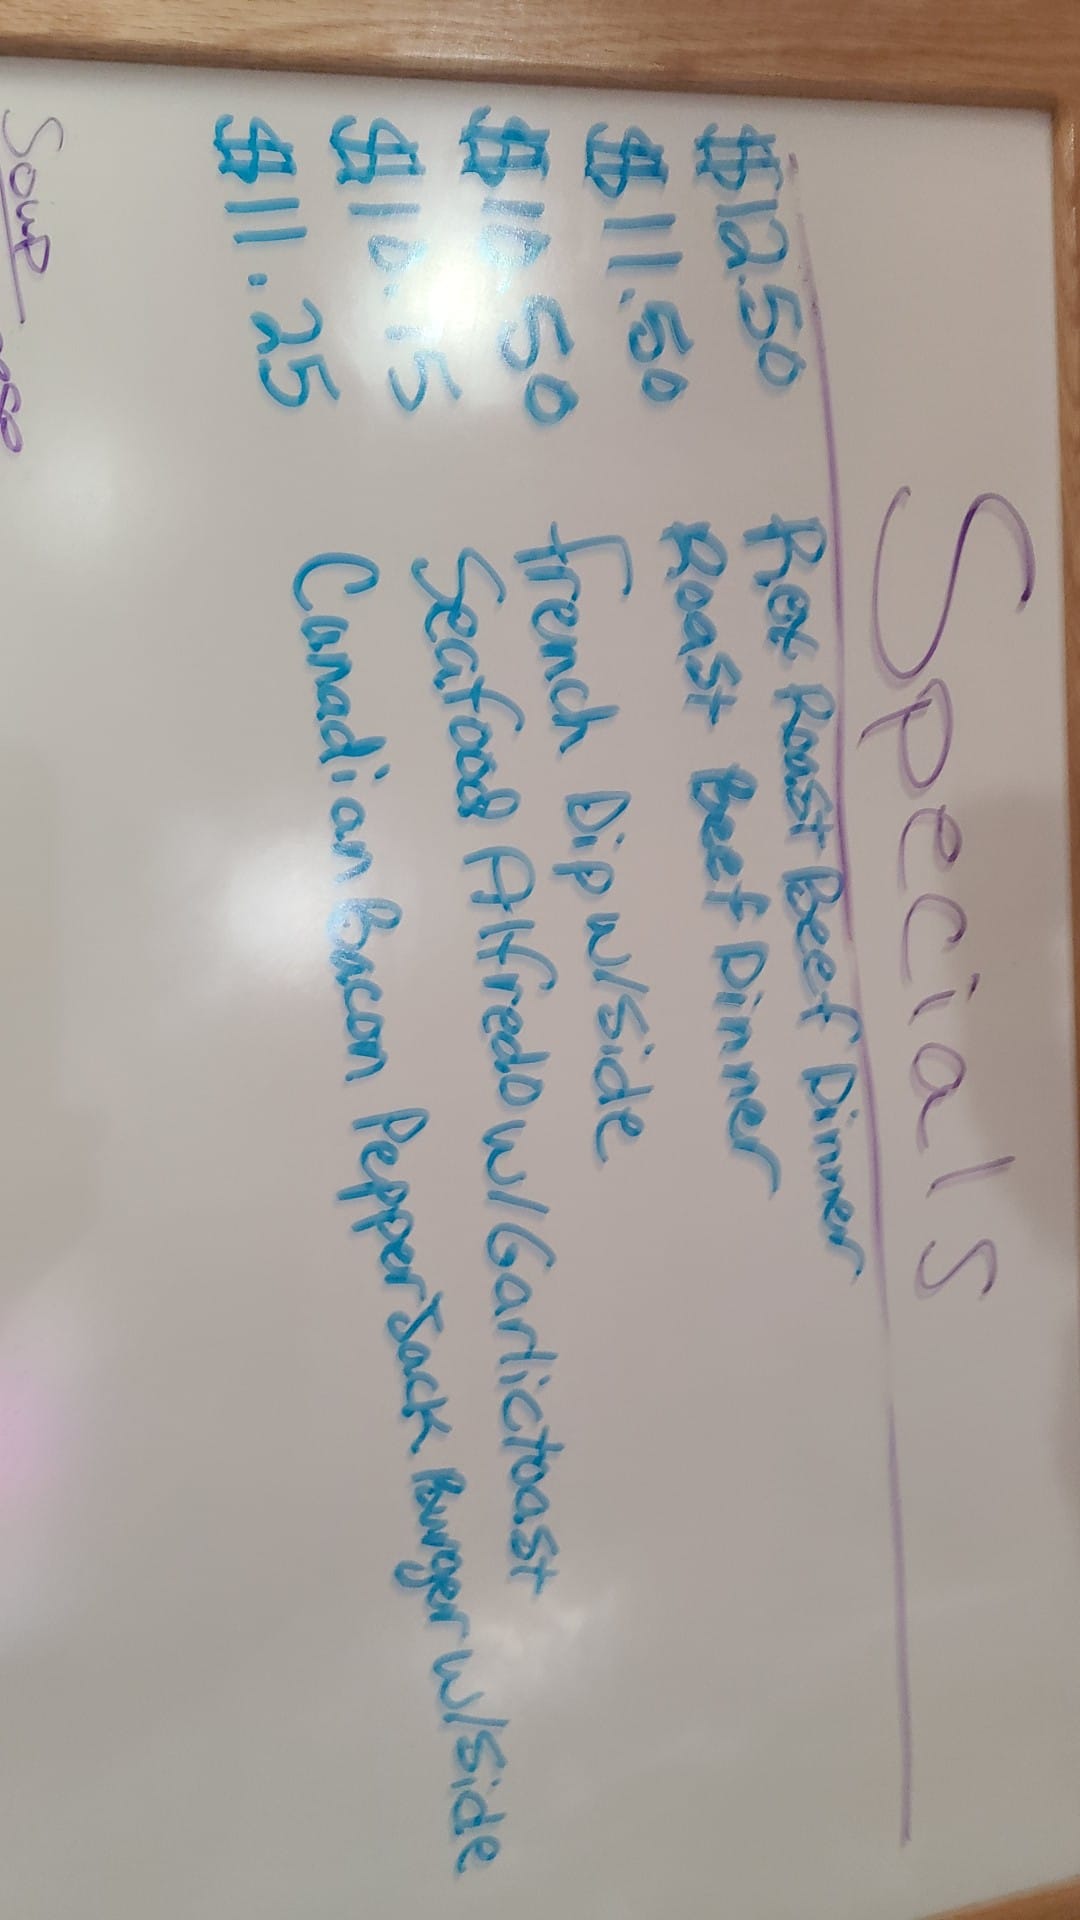 Specials
$12.50 Pot Roast Beef Dinner
$11.50 Roast Beef Dinner
$10.50 French Dip w/side
Seafood Alfredo w/Garlictoast
$11.25 Canadian Bacon PepperJack Burger w/side
Soup